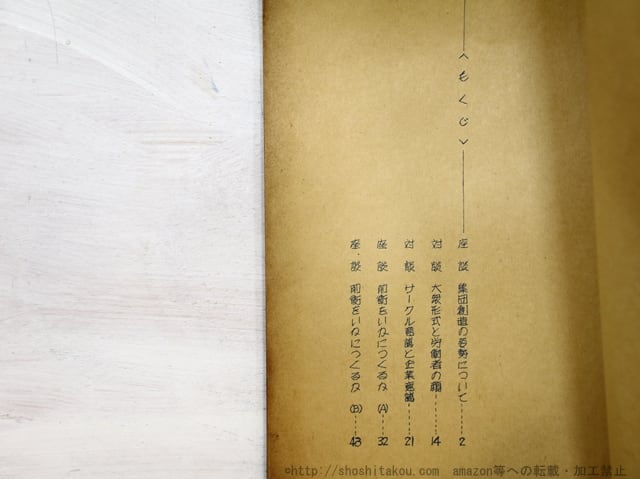 ＜もくじ＞
座談 集団創造の姿勢について……2
対談 大衆形式と労働者の顔……14
対談 サークル意識と企業意識……21
座談 前衛をいかにつくるか (A)……32
座・談 前衛をいかにつくるか (B)……43
©http://shoshitakou.com amazon等への転載・加工禁止